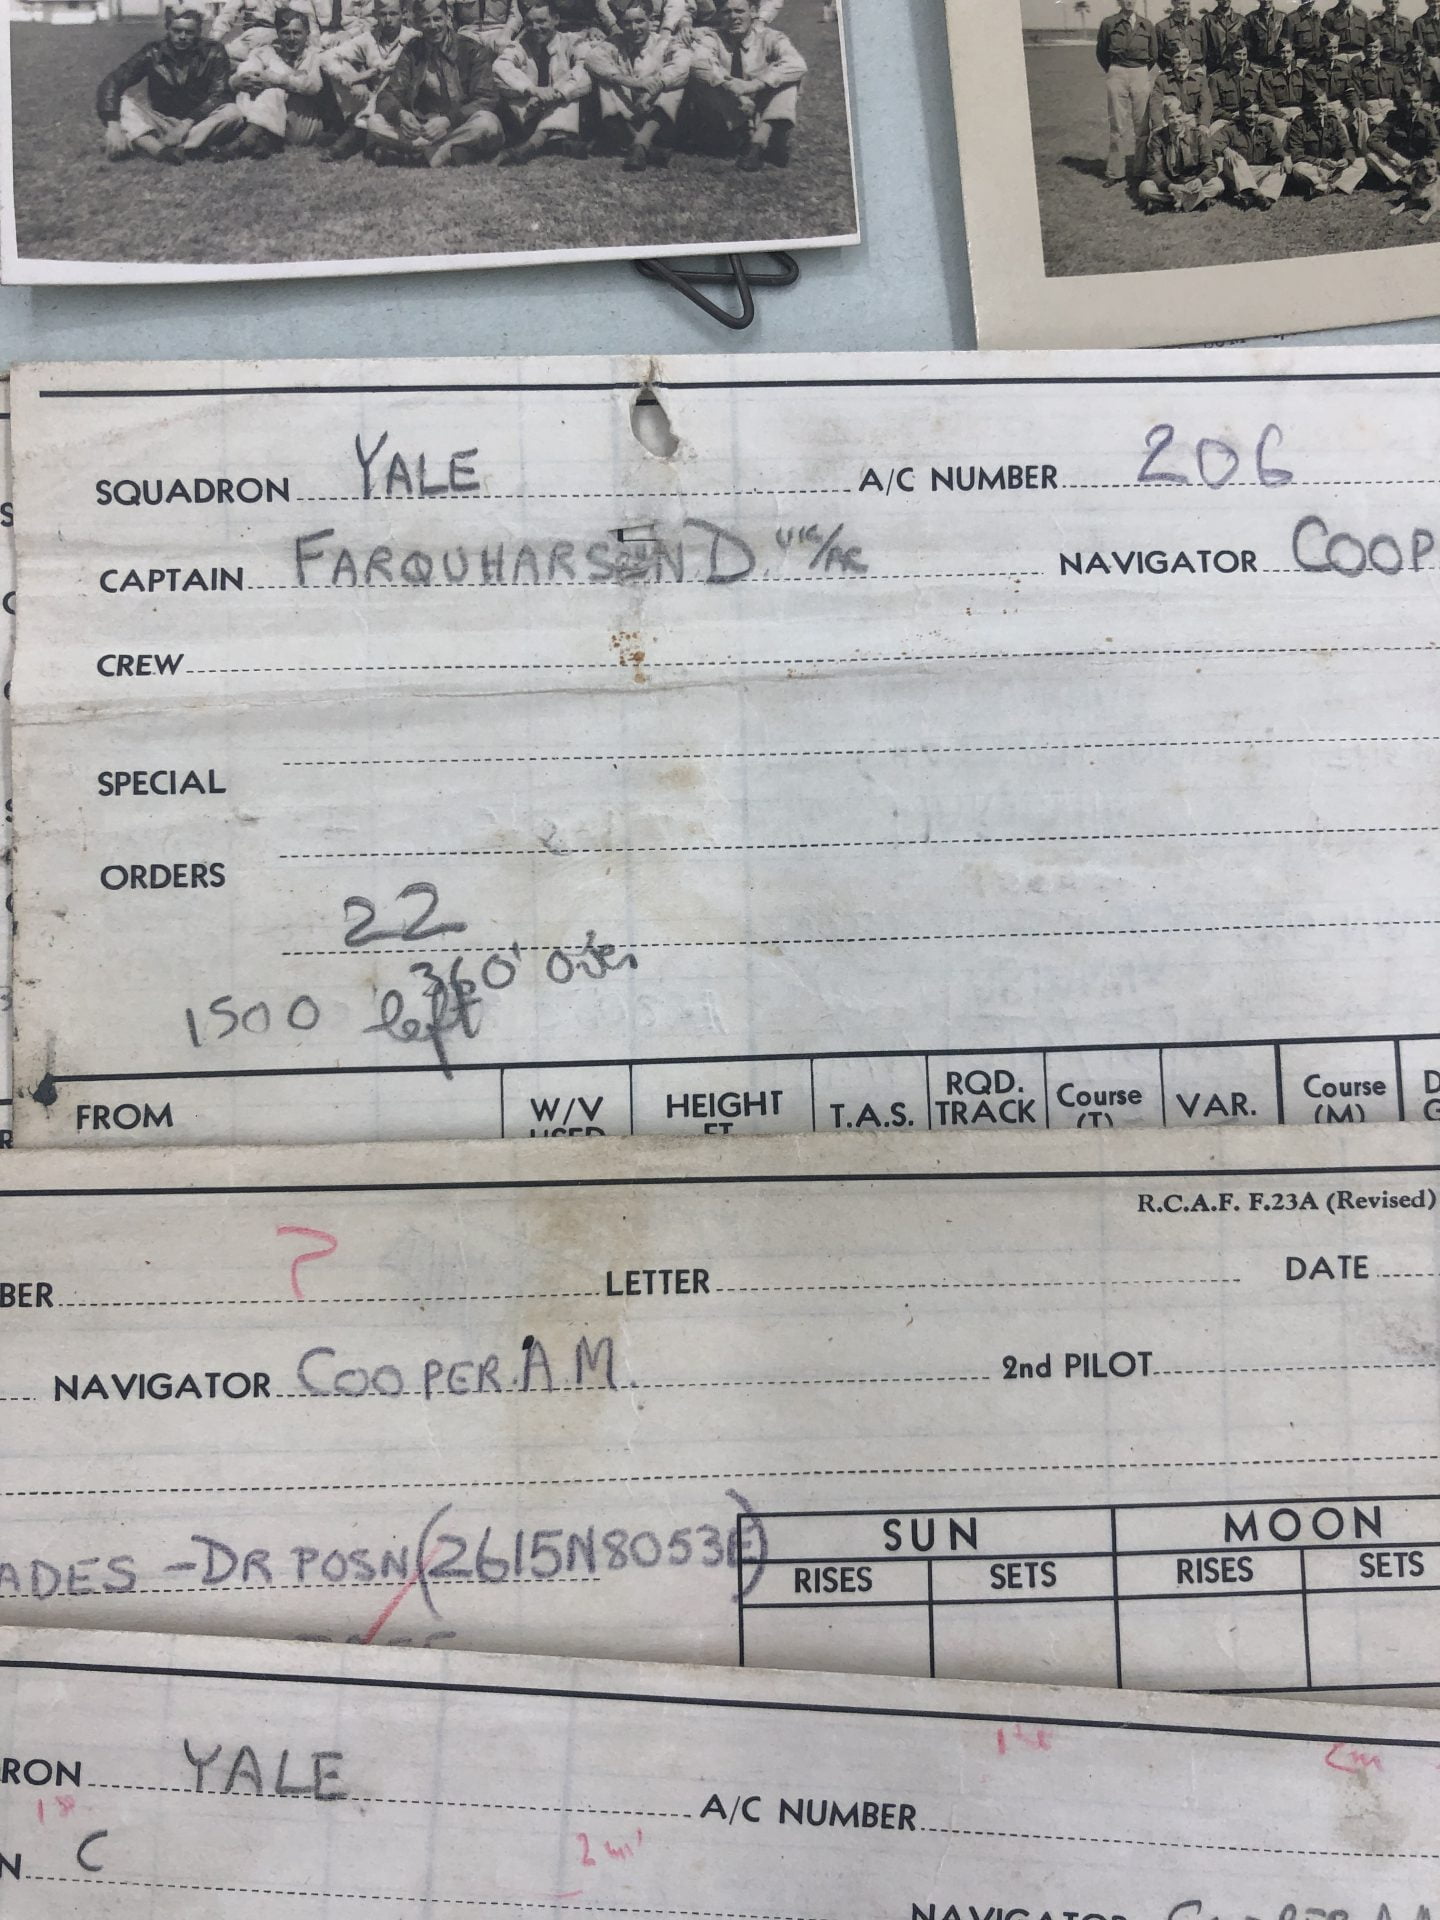 SQUADRON YALE A/C NUMBER 206
CAPTAIN FARQUHARSON D. NAVIGATOR COOP
CREW
SPECIAL
ORDERS
22
360' over
1500 left
FROM W/V USED HEIGHT FT T.A.S. RQD. TRACK Course (T) VAR. Course (M)
R.C.A.F. F.23A (Revised)
BER ? LETTER DATE
NAVIGATOR COOPER. A.M. 2nd PILOT
ADES - DR POSN (2615N 8053E)
SUN MOON
RISES SETS RISES SETS
RON YALE. A/C NUMBER
N C
NAVIGATOR COOPER A.M